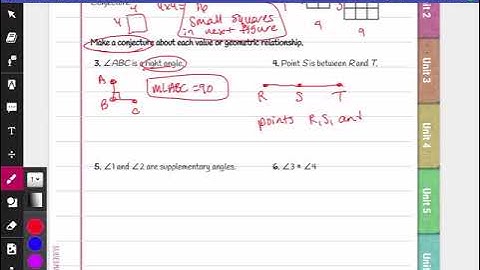 Conjecture:
4 4x4= 16
4
Small squares
in next figure
1 4 9
9
Make a conjecture about each value or geometric relationship.
3. ∠ABC is a right angle.
4. Point S is between R and T.
A
B C
m∠ABC = 90
R S T
points R, S, and
5. ∠1 and ∠2 are supplementary angles.
6. ∠3 ≅ ∠4
Unit 2
Unit 3
Unit 4
Unit 5
Unit 6
T